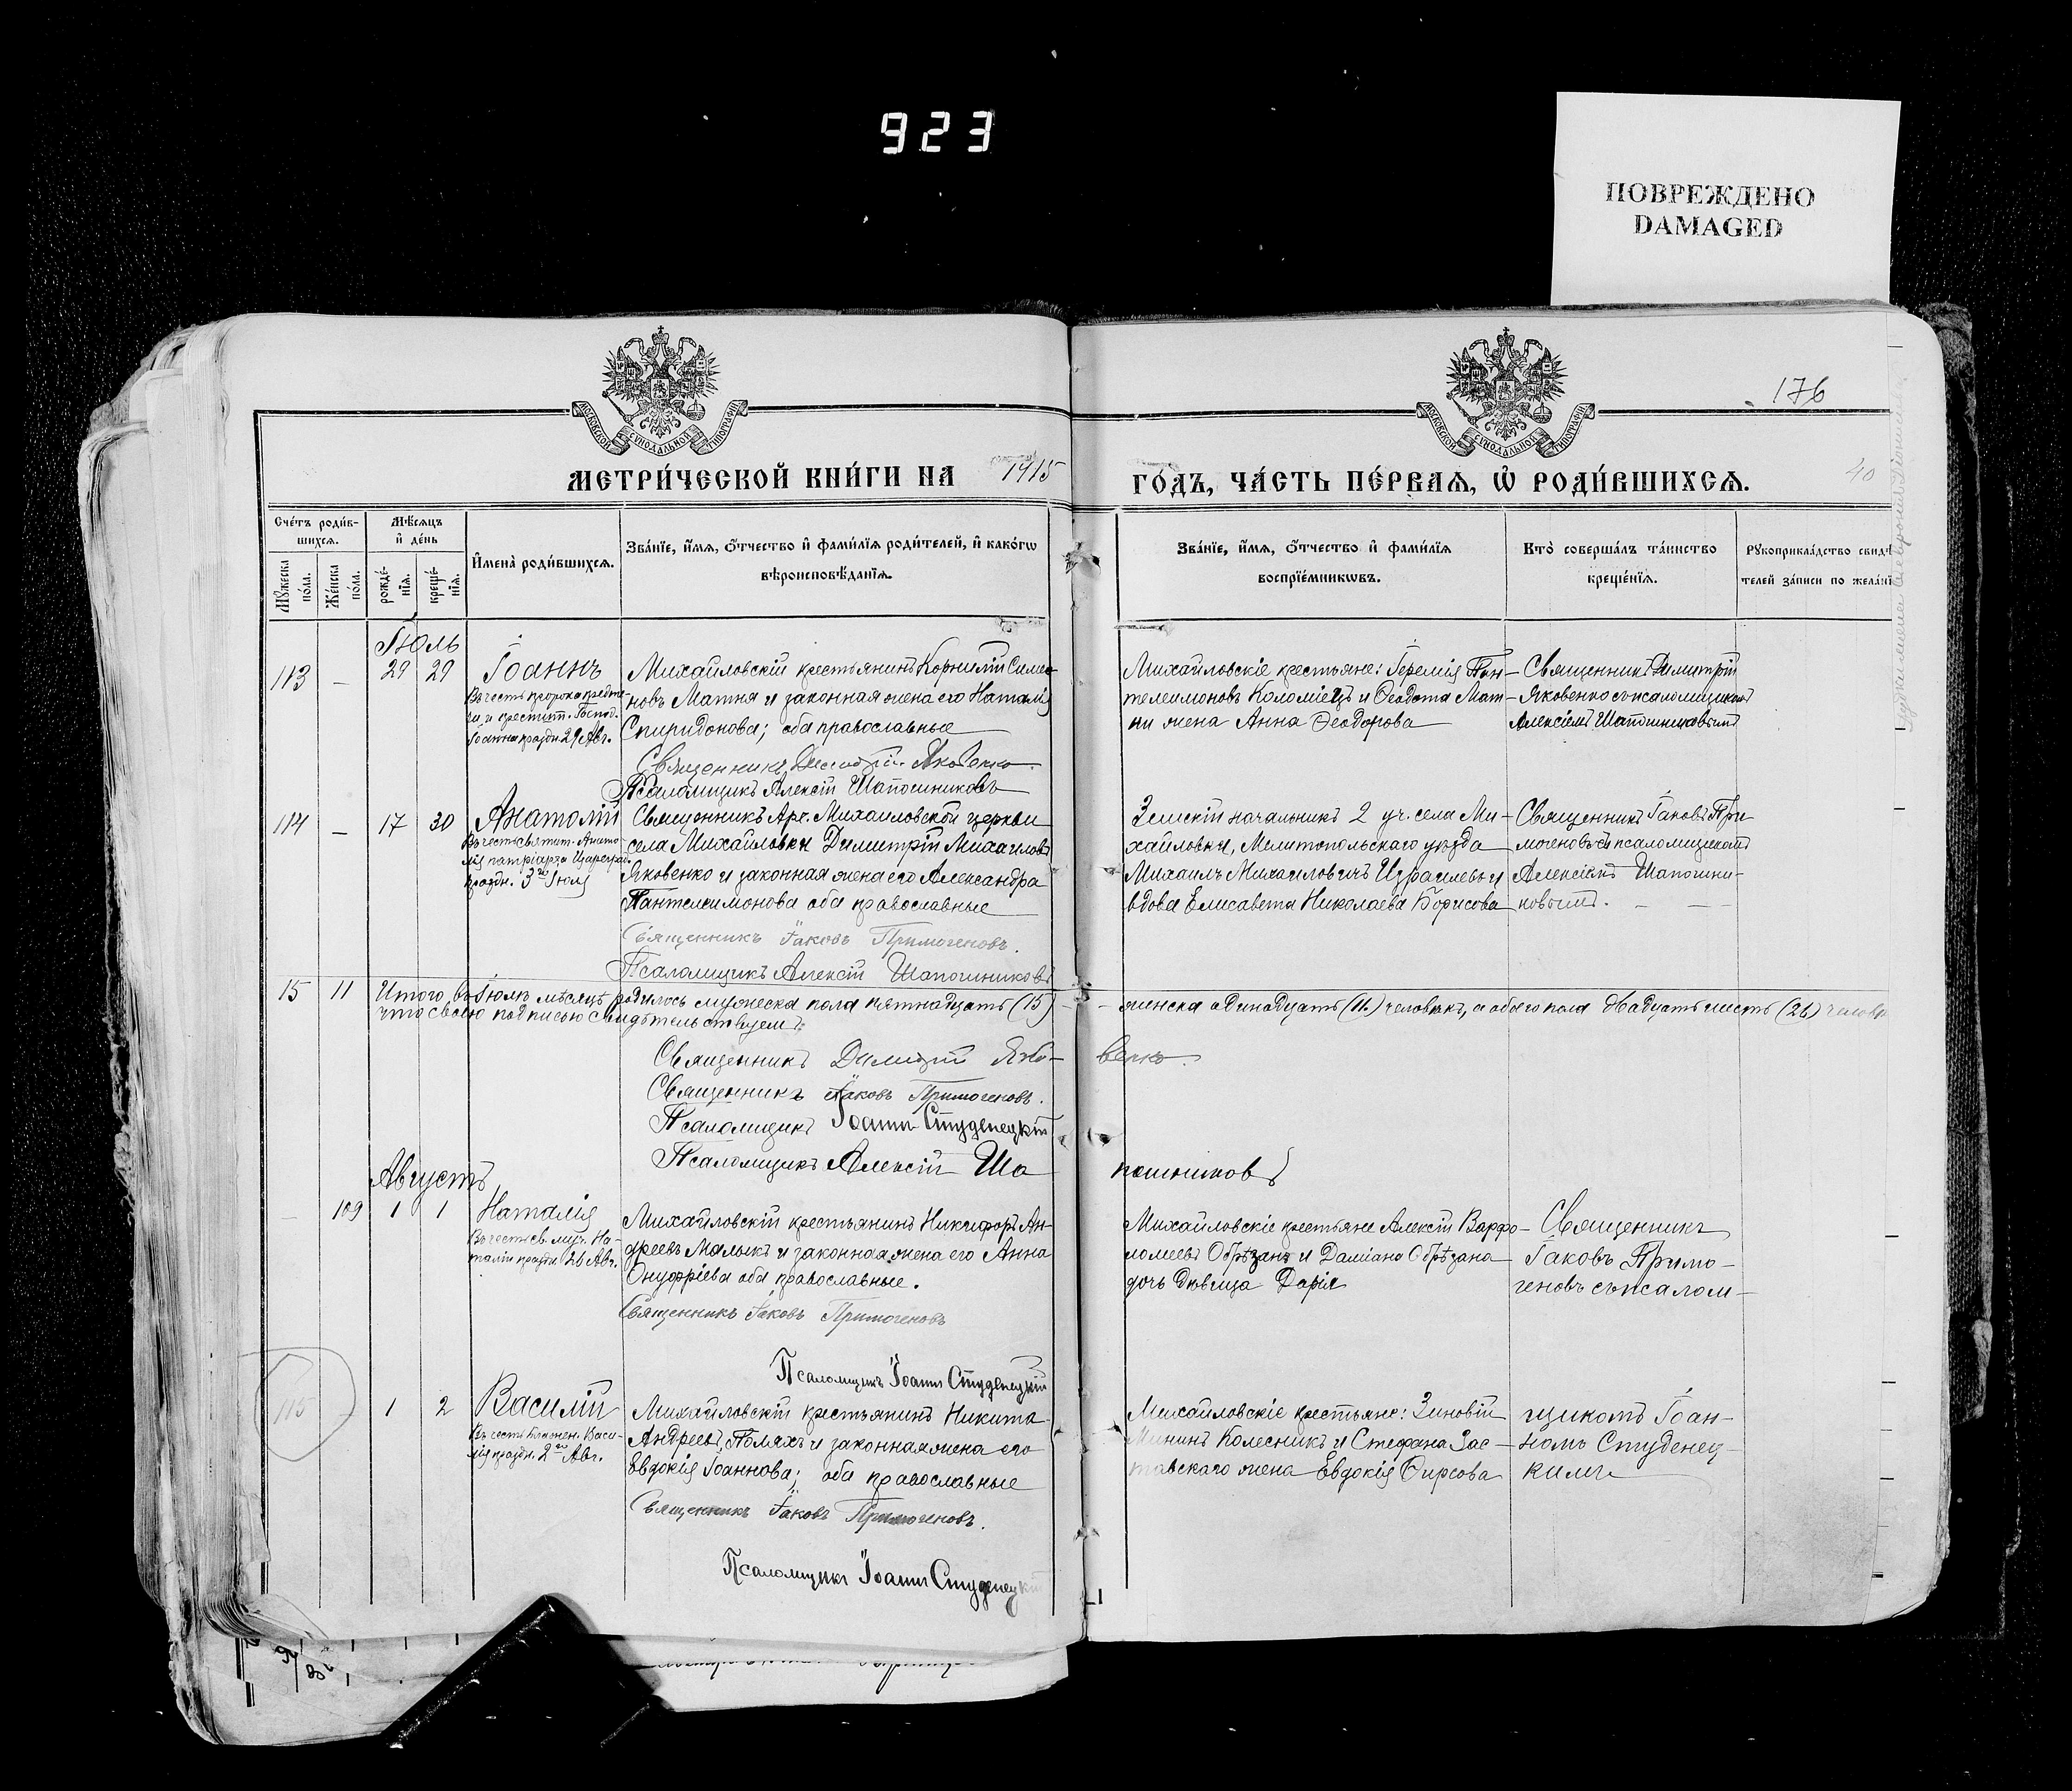 923
ПОВРЕЖДЕНО
DAMAGED
176
40
МОСКОВСКОЙ СУНОДАЛЬНОЙ ТИПОГРАФІИ
МОСКОВСКОЙ СУНОДАЛЬНОЙ ТИПОГРАФІИ
МЕТРИ́ЧЕСКОЙ КНИ́ГИ НА 1915 ГО́ДЪ, ЧА́СТЬ ПЕ́РВАѦ, Ѡ РОДИ́ВШИХСѦ.
Сче́тъ роди́в-
шихсѧ.
Мꙋ́жеска по́ла.
Же́нска по́ла.
Мѣ́сѧцъ
и де́нь
рожде́-
нїѧ.
креще́-
нїѧ.
Имена̀ роди́вшихсѧ.
Зва́нїе, и́мѧ, ѻ́тчество и фами́лїѧ роди́телей, и како́гѡ
вѣроисповѣ́данїѧ.
Зва́нїе, и́мѧ, ѻ́тчество и фами́лїѧ
воспрїе́мникѡвъ.
Кто̀ соверша́лъ та́инство
креще́нїѧ.
Рꙋкоприкла́дство свидѣ́
телей за́писи по жела́нї
Іюль
113 — 29 29 Іоаннъ
Въ честь пророка предте-
чи и крестит. Господ.
Іоанна праздн. 29 Авг.
Михайловскій крестьянинъ Корнилій Симео-
новъ Матня и законная жена его Наталія
Спиридонова; оба православные
Священникъ Димитрій Яковенко
Псаломщикъ Алексій Шапошниковъ
Михайловскіе крестьяне: Іеремія Пан-
телеимоновъ Коломіецъ и Ѳеодота Мат-
ни жена Анна Ѳеодорова
Священникъ Димитрій
Яковенко съ псаломщикомъ
Алексіемъ Шапошниковымъ
114 — 17 30 Анатолій
Въ честь святит. Анато-
лія патріарха Цареград.
праздн. 3го Іюля
Священникъ Арх. Михайловской церкви
села Михайловки Димитрій Михаиловъ
Яковенко и законная жена его Александра
Пантелеимонова оба православные
Священникъ Іаковъ Примогеновъ.
Псаломщикъ Алексій Шапошниковъ
Земскій начальникъ 2 уч. села Ми-
хайловки, Мелитопольскаго уѣзда
Михаилъ Михаиловичъ Израилевъ и
вдова Елисавета Николаева Борисова
Священникъ Іаковъ При-
могеновъ съ псаломщикомъ
Алексіемъ Шапошни-
ковымъ.
15 11 Итого въ Іюлѣ мѣсяцѣ родилось мужеска пола пятнадцать (15) — женска одинадцать (11) человѣкъ, а обоего пола двадцать шесть (26) человѣ
что своею подписью свидѣтельствуемъ:
Священникъ Димитрій Яко-венко.
Священникъ Іаковъ Примогеновъ.
Псаломщикъ Іоаннъ Студенецкій
Псаломщикъ Алексій Ша пошниковъ
Августъ
— 109 1 1 Наталія
Въ честь св. муч. На-
таліи праздн. 26 Авг.
Михайловскій крестьянинъ Никифоръ Ан-
дреевъ Малыкъ и законная жена его Анна
Онуфріева оба православные.
Священникъ Іаковъ Примогеновъ
Псаломщикъ Іоаннъ Студенецкій
Михайловскіе крестьяне Алексій Варфо-
ломеевъ Обрѣзанъ и Даміана Обрѣзана
дочь дѣвица Дарія
Священникъ
Іаковъ Примо-
геновъ съ псалом-
115 — 1 2 Василій
Въ честь блажен. Васи-
лія праздн. 2го Авг.
Михайловскій крестьянинъ Никита
Андреевъ Поляхъ и законная жена его
Евдокія Іоаннова; оба православные
Священникъ Іаковъ Примогеновъ.
Псаломщикъ Іоаннъ Студенецкій
Михайловскіе крестьяне: Зиновій
Мининъ Колесникъ и Стефана Зас-
тавскаго жена Евдокія Ѳирсова
щикомъ Іоан-
номъ Студенец-
кимъ